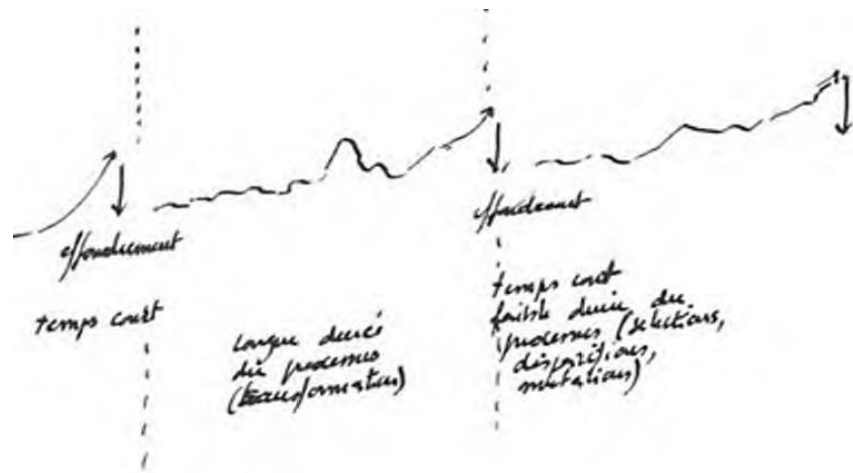 effondrement
temps court
longue durée
du processus
(transformation)
effondrement
temps court
faible durée du
processus (sélections,
disparitions,
mutations)